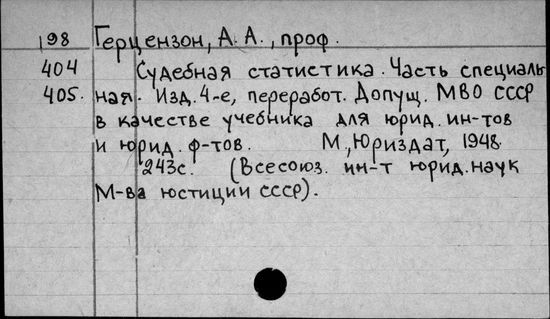 198 Герцензон, А. А., проф.
404 Судебная статистика. Часть специаль
405. ная. Изд. 4-е, переработ. Допущ. МВО СССР
в качестве учебника для юрид. ин-тов
и юрид. ф-тов. М., Юриздат, 1948.
243с. (Всесоюз. ин-т юрид. наук
М-ва юстиции СССР).